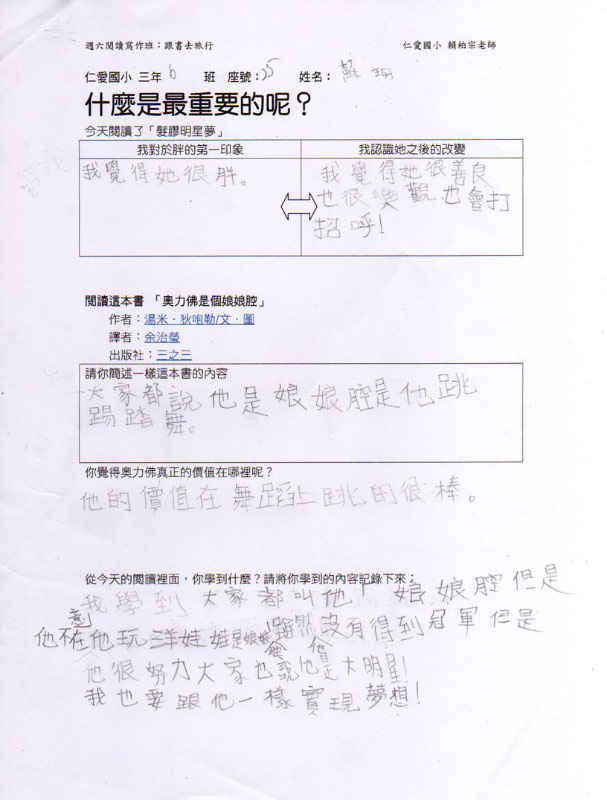 週六閱讀寫作班：跟書去旅行 仁愛國小 賴柏宗老師
仁愛國小 三年 6 班 座號：25 姓名：蘇玥
什麼是最重要的呢？
今天閱讀了「髮膠明星夢」
我對於胖的第一印象 我認識她之後的改變
我覺得她很胖。 我覺得她很善良
也很樂觀也會打
招呼!
閱讀這本書 「奧力佛是個娘娘腔」
作者：湯米．狄咆勒/文．圖
譯者：余治瑩
出版社：三之三
請你簡述一樣這本書的內容
大家都說他是娘娘腔是他跳
踢踏舞。
你覺得奧力佛真正的價值在哪裡呢？
他的價值在舞蹈上跳的很棒。
從今天的閱讀裡面，你學到什麼？請將你學到的內容記錄下來：
我學到大家都叫他 娘娘腔但是
他不在意他玩洋娃娃是娘娘 雖然沒有得到冠軍但是
他很努力大家也說他是大明星
我也要跟他一樣實現夢想!